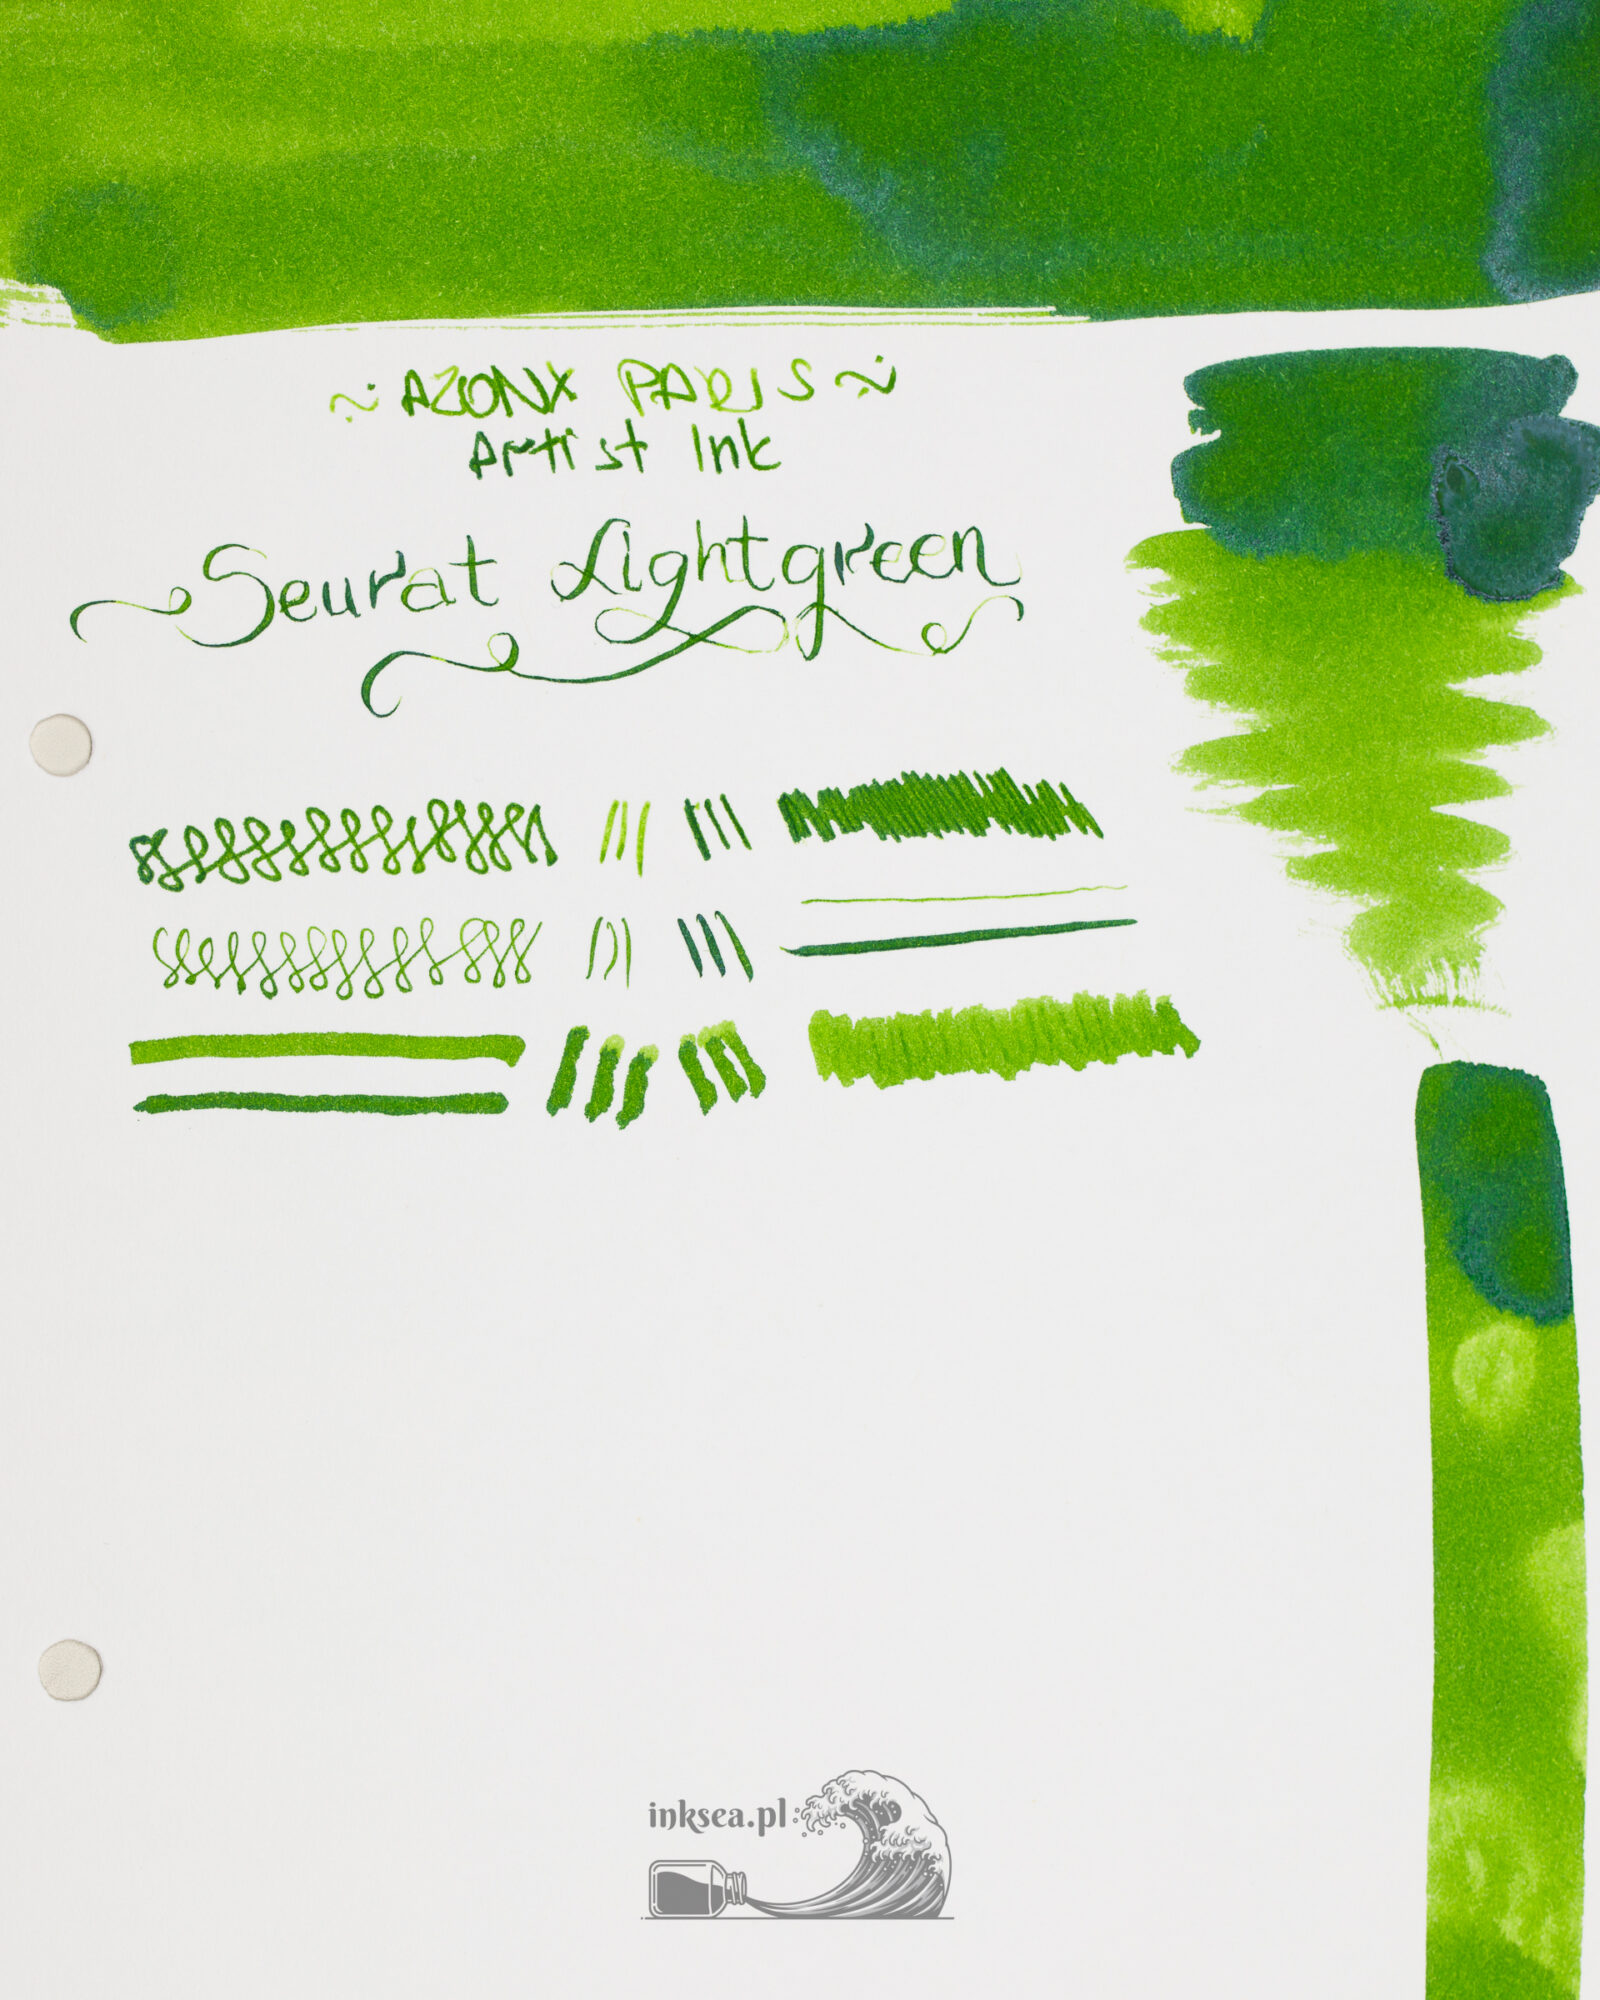 ~ AZONX PARIS ~
Artist Ink
Seurat Lightgreen
inksea.pl